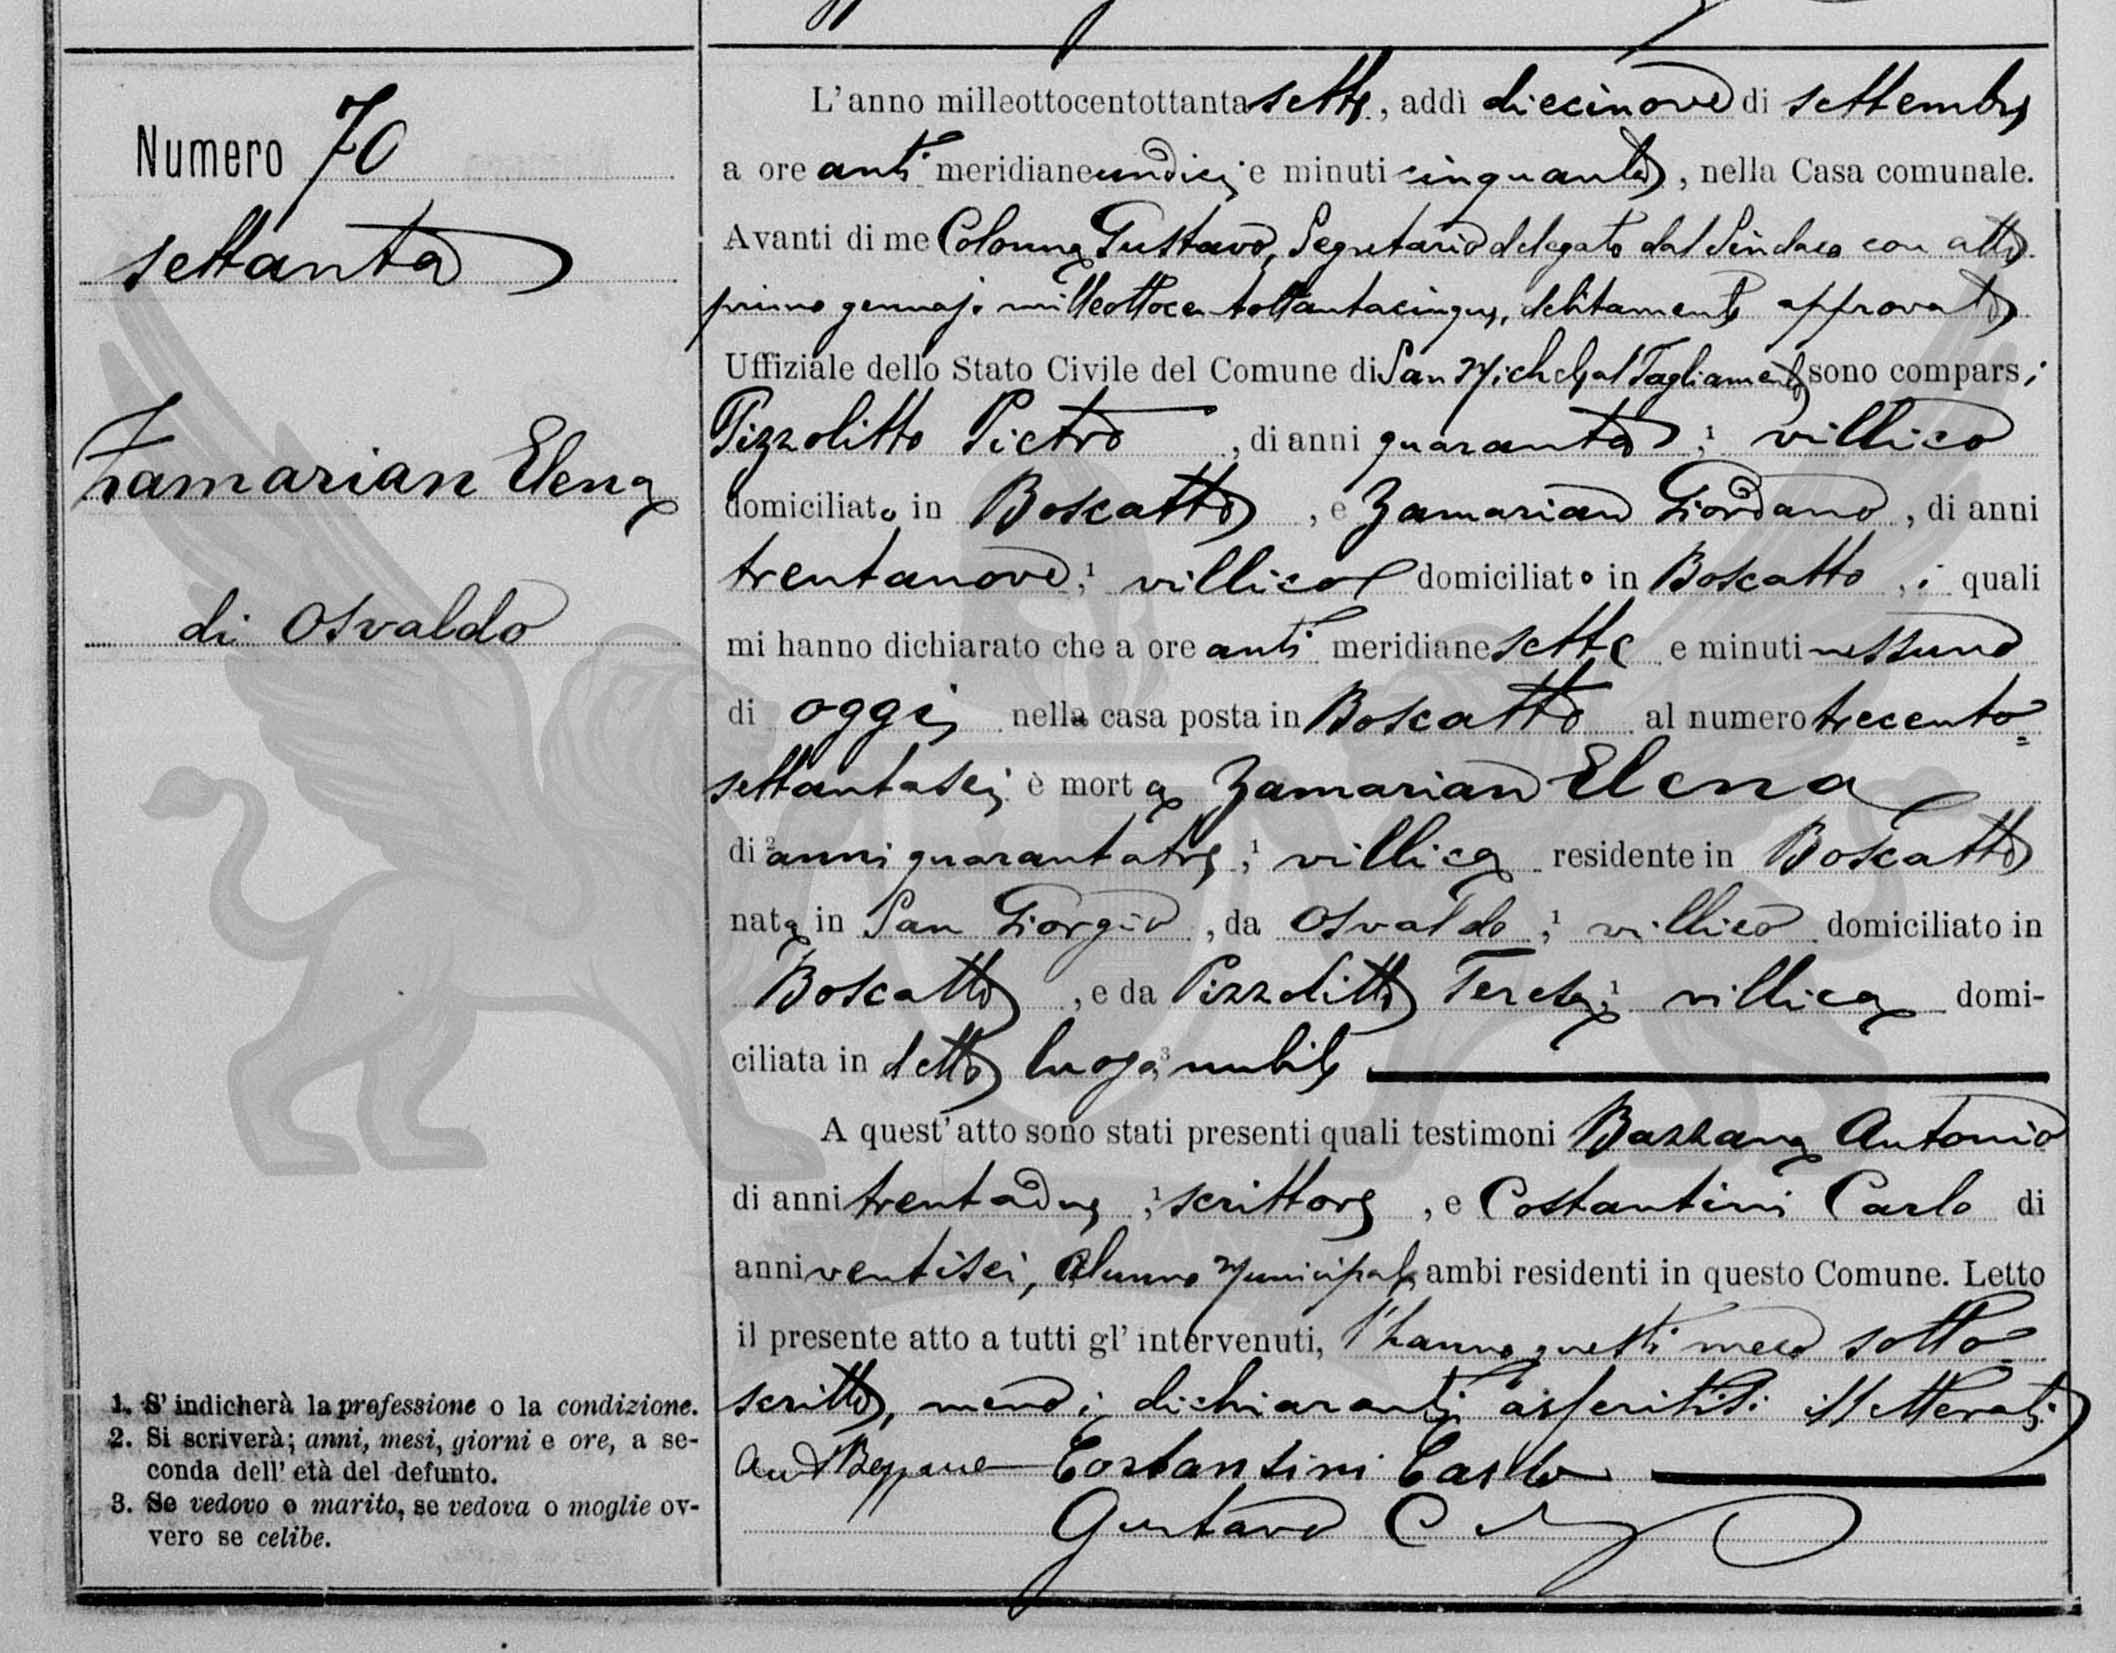 Numero 70
settanta
Zamarian Elena
di Osvaldo
1. S' indicherà la professione o la condizione.
2. Si scriverà; anni, mesi, giorni e ore, a se-
conda dell' età del defunto.
3. Se vedovo o marito, se vedova o moglie ov-
vero se celibe.
L'anno milleottocentottantasette, addì diecinove di settembre
a ore anti meridiane undici e minuti cinquanta, nella Casa comunale.
Avanti di me Colonna Gustavo, Segretario delegato dal Sindaco con atto
primo gennajo milleottocentottantacinque, debitamente approvato
Uffiziale dello Stato Civile del Comune di San Michele al Tagliamento sono comparsi
Pizzolitto Pietro, di anni quaranta, villico
domiciliato in Boscatto, e Zamarian Giordano, di anni
trentanove, villico domiciliato in Boscatto, i quali
mi hanno dichiarato che a ore anti meridiane sette e minuti nessuno
di oggi nella casa posta in Boscatto al numero trecento=
settantasei è morta Zamarian Elena
di anni quarantatre, villica residente in Boscatto
nata in San Giorgio, da Osvaldo, villico domiciliato in
Boscatto, e da Pizzolitto Teresa, villica domi-
ciliata in detto luogo, nubile
A quest'atto sono stati presenti quali testimoni Bazzana Antonio
di anni trentadue, scrittore, e Costantini Carlo di
anni ventisei, Alunno Municipale ambi residenti in questo Comune. Letto
il presente atto a tutti gl' intervenuti, l'hanno questi meco sotto=
scritto, meno i dichiaranti asseritisi illetterati
Costantini Carlo
Gustavo